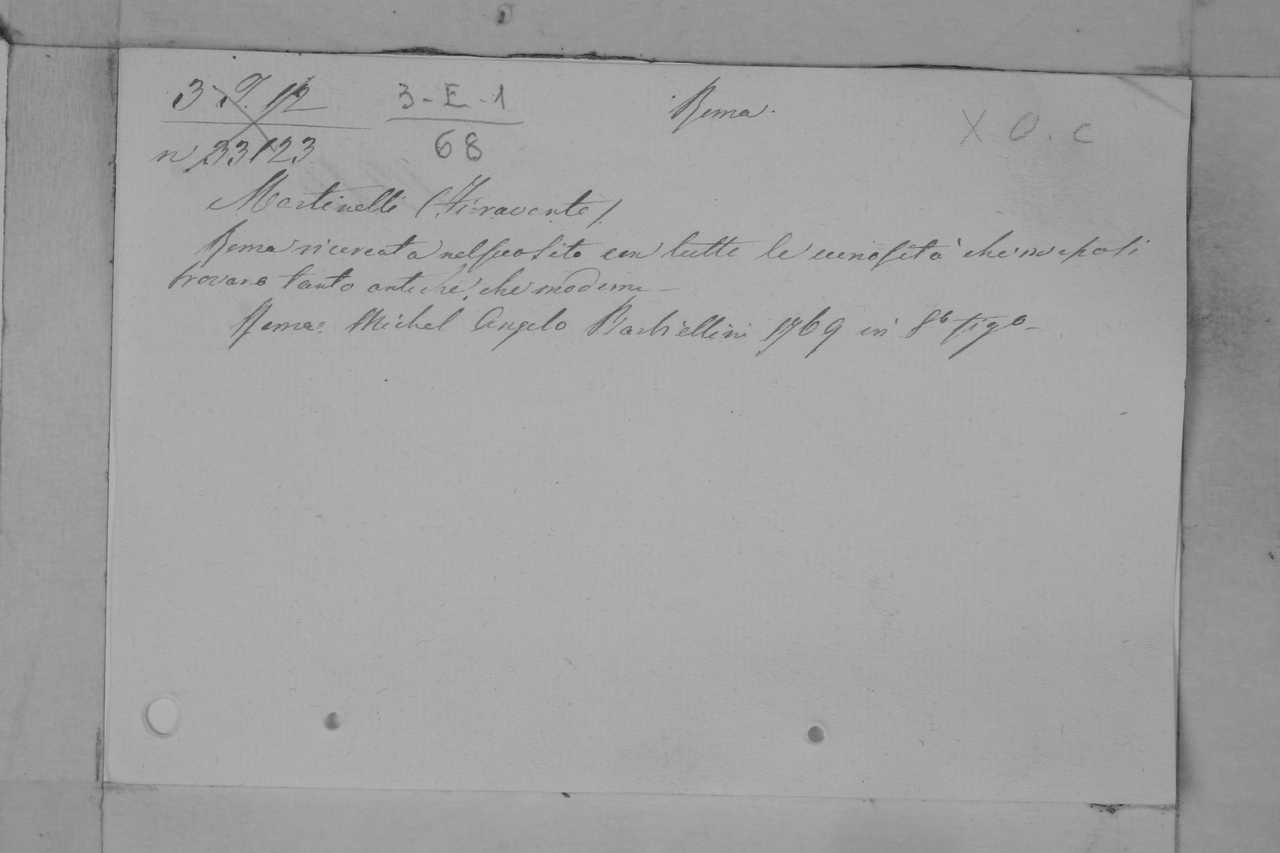 3-9.12 3-E-1 Roma. X O. c
n 33123 68
Martinelli (Fioravante).
Roma ricercata nel suo sito con tutte le curiosità che in essa si
trovano tanto antiche, che moderne_
Roma. Michel Angelo Barbiellini 1769 in 8º fig.º_